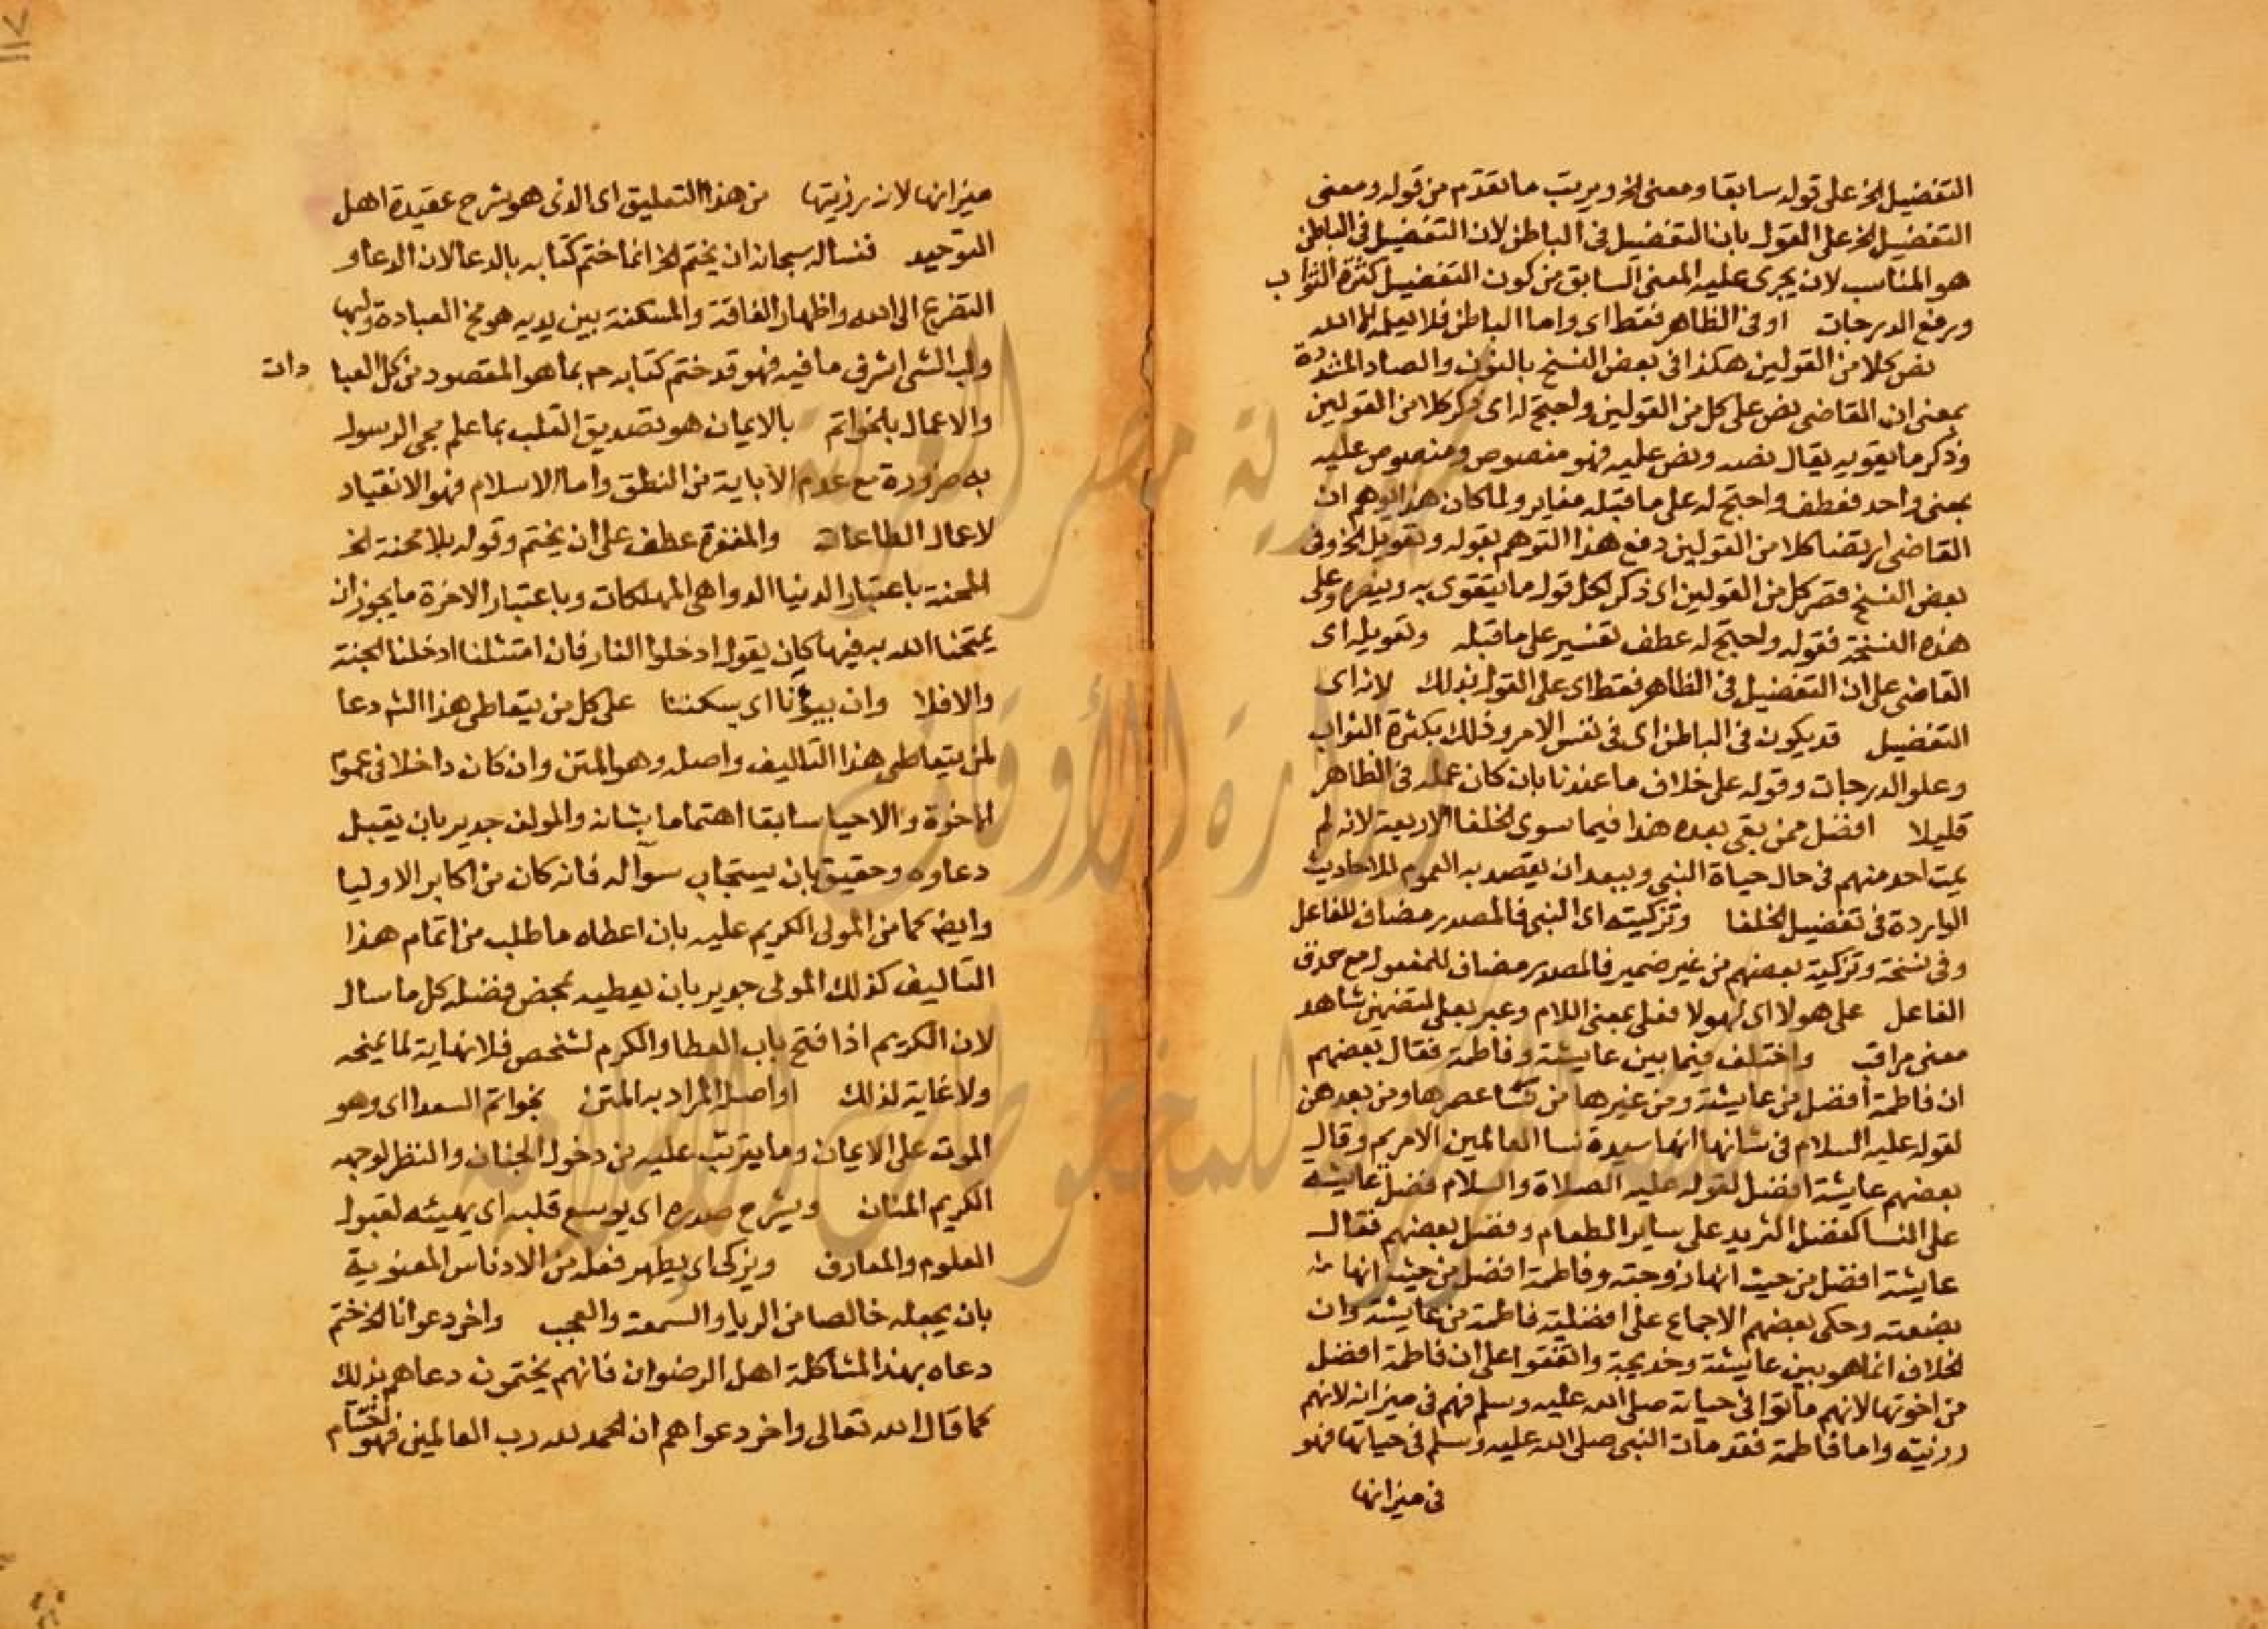 التفضيل الخ على قوله سابقا ومعنى الخ ويرتب ما تقدم من قوله ومعنى
التفضيل الخ على القول بان التفضيل فى الباطن لان التفضيل فى الباطن
هو المناسب لان يجرى عليه المعنى السابق من كون التفضيل كثرة الثواب
ورفع الدرجات او فى الظاهر فقط اى واما الباطن فلا يعلمه الا الله
نص كلا من القولين هكذا فى بعض النسخ بالنون والصاد المشددة
بمعنى ان القاضى نص على كل من القولين واحتج له اى ذكر كلا من القولين
وذكر ما يقويه يقال نصه ونص عليه فهو منصوص ومنصوص عليه
بمعنى واحد فعطف واحتج له على ما قبله مغاير ولما كان هذا يوهم ان
القاضى ارتضا كلا من القولين دفع هذا التوهم بقوله وتعويل الخ وفى
بعض النسخ فصر كل من القولين اى ذكر لكل قول ما يتقوى به وينصره وعلى
هذه النسخة فقوله واحتج له عطف تفسير على ما قبله وتعويله اى
القاضى على ان التفضيل فى الظاهر فقط اى على القول بذلك لانه اى
التفضيل قد يكون فى الباطن اى فى نفس الامر وذلك بكثرة الثواب
وعلو الدرجات وقوله على خلاف ما عندنا بان كان عمله فى الظاهر
قليلا افضل ممن بقى بعده هذا فيما سوى الخلفا الاربعة لانه لم
يمت احد منهم فى حال حياة النبى ويبعد ان يقصد به العموم للاحاديث
الواردة فى تفضيل الخلفا وتزكيته اى النبى فالمصدر مضاف للفاعل
وفى نسخة وتزكية بعضهم من غير ضمير فالمصدر مضاف للمفعول مع حذف
الفاعل على هولا اى لهولا فعلى بمعنى اللام وعبر بعلى لتضمين شاهد
معنى مراقب واختلف فيما بين عايشة وفاطمة فقال بعضهم
ان فاطمة افضل من عايشة ومن غيرها من نسا عصرها ومن بعدهن
لقوله عليه السلام فى شانها انها سيدة نسا العالمين الا مريم وقال
بعضهم عايشة افضل لقوله عليه الصلاة والسلام فضل عايشة
على النسا كفضل الثريد على ساير الطعام وفضل بعضهم فقال
عايشة افضل من حيث انها زوجته وفاطمة افضل من حيث انها
بضعته وحكى بعضهم الاجماع على افضلية فاطمة من عايشة وان
الخلاف انما هو بين عايشة وخديجة واتفقوا على ان فاطمة افضل
من اخوتها لانهم ماتوا فى حياته صلى الله عليه وسلم فهم فى ميزانه لانهم
رزيته واما فاطمة فقد مات النبى صلى الله عليه وسلم فى حياتها فهو
فى ميزانها
ميزانها لانه رزيتها من هذا التعليق اى الذى هو شرح عقيدة اهل
التوحيد فنساله سبحانه ان يختم الخ انما ختم كتابه بالدعا لان الدعا و
التضرع الى الله واظهار الفاقة والمسكنة بين يديه هو مخ العبادة ولبها
ولب الشى اشرف ما فيه فهو قد ختم كتابه بما هو المقصود من كل العبادات
والاعمال بالخواتم بالايمان هو تصديق القلب بما علم مجى الرسول
به ضرورة مع عدم الاباية من النطق واما الاسلام فهو الانقياد
لاعمال الطاعات والمغفرة عطف على ان يختم وقوله بلا محنة الخ
المحنة باعتبار الدنيا الدواهى المهلكات وباعتبار الاخرة ما يجوز ان
يمتحننا الله به فيها كان يقول ادخلوا النار فان امتثلنا ادخلنا الجنة
والا فلا وان يبوأنا اى يسكننا على كل من يتعاطى هذا الشه دعا
لمن يتعاطى هذا التاليف واصله وهو المتن وان كان داخلا فى عموم
الاخوة والاحيا سابقا اهتماما بشانه والمولف جدير بان يقبل
دعاوه وحقيق بان يستجاب سواله فانه كان من اكابر الاوليا
وايضا كما من المولى الكريم عليه بان اعطاه ما طلب من اتمام هذا
التاليف كذلك المولى جدير بان يعطيه بمحض فضله كل ما سال
لان الكريم اذا فتح باب العطا والكرم لشخص فلا نهاية لما يمنحه
ولا غاية لذلك او اصله المراد به المتن بخواتم السعدا اى وهو
الموت على الايمان وما يترتب عليه من دخول الجنان والنظر لوجهه
الكريم المنان ويشرح صدره اى يوسع قلبه اى يهيئه لقبول
العلوم والمعارف ويزكى اى يطهر فعله من الادناس المعنوية
بان يجعله خالصا من الريا والسمعة والعجب واخر دعوانا الخ ختم
دعاه بهذا المشاكلة اهل الرضوان فانهم يختمون دعاهم بذلك
كما قال الله تعالى واخر دعواهم ان الحمد لله رب العالمين فهو اختتام